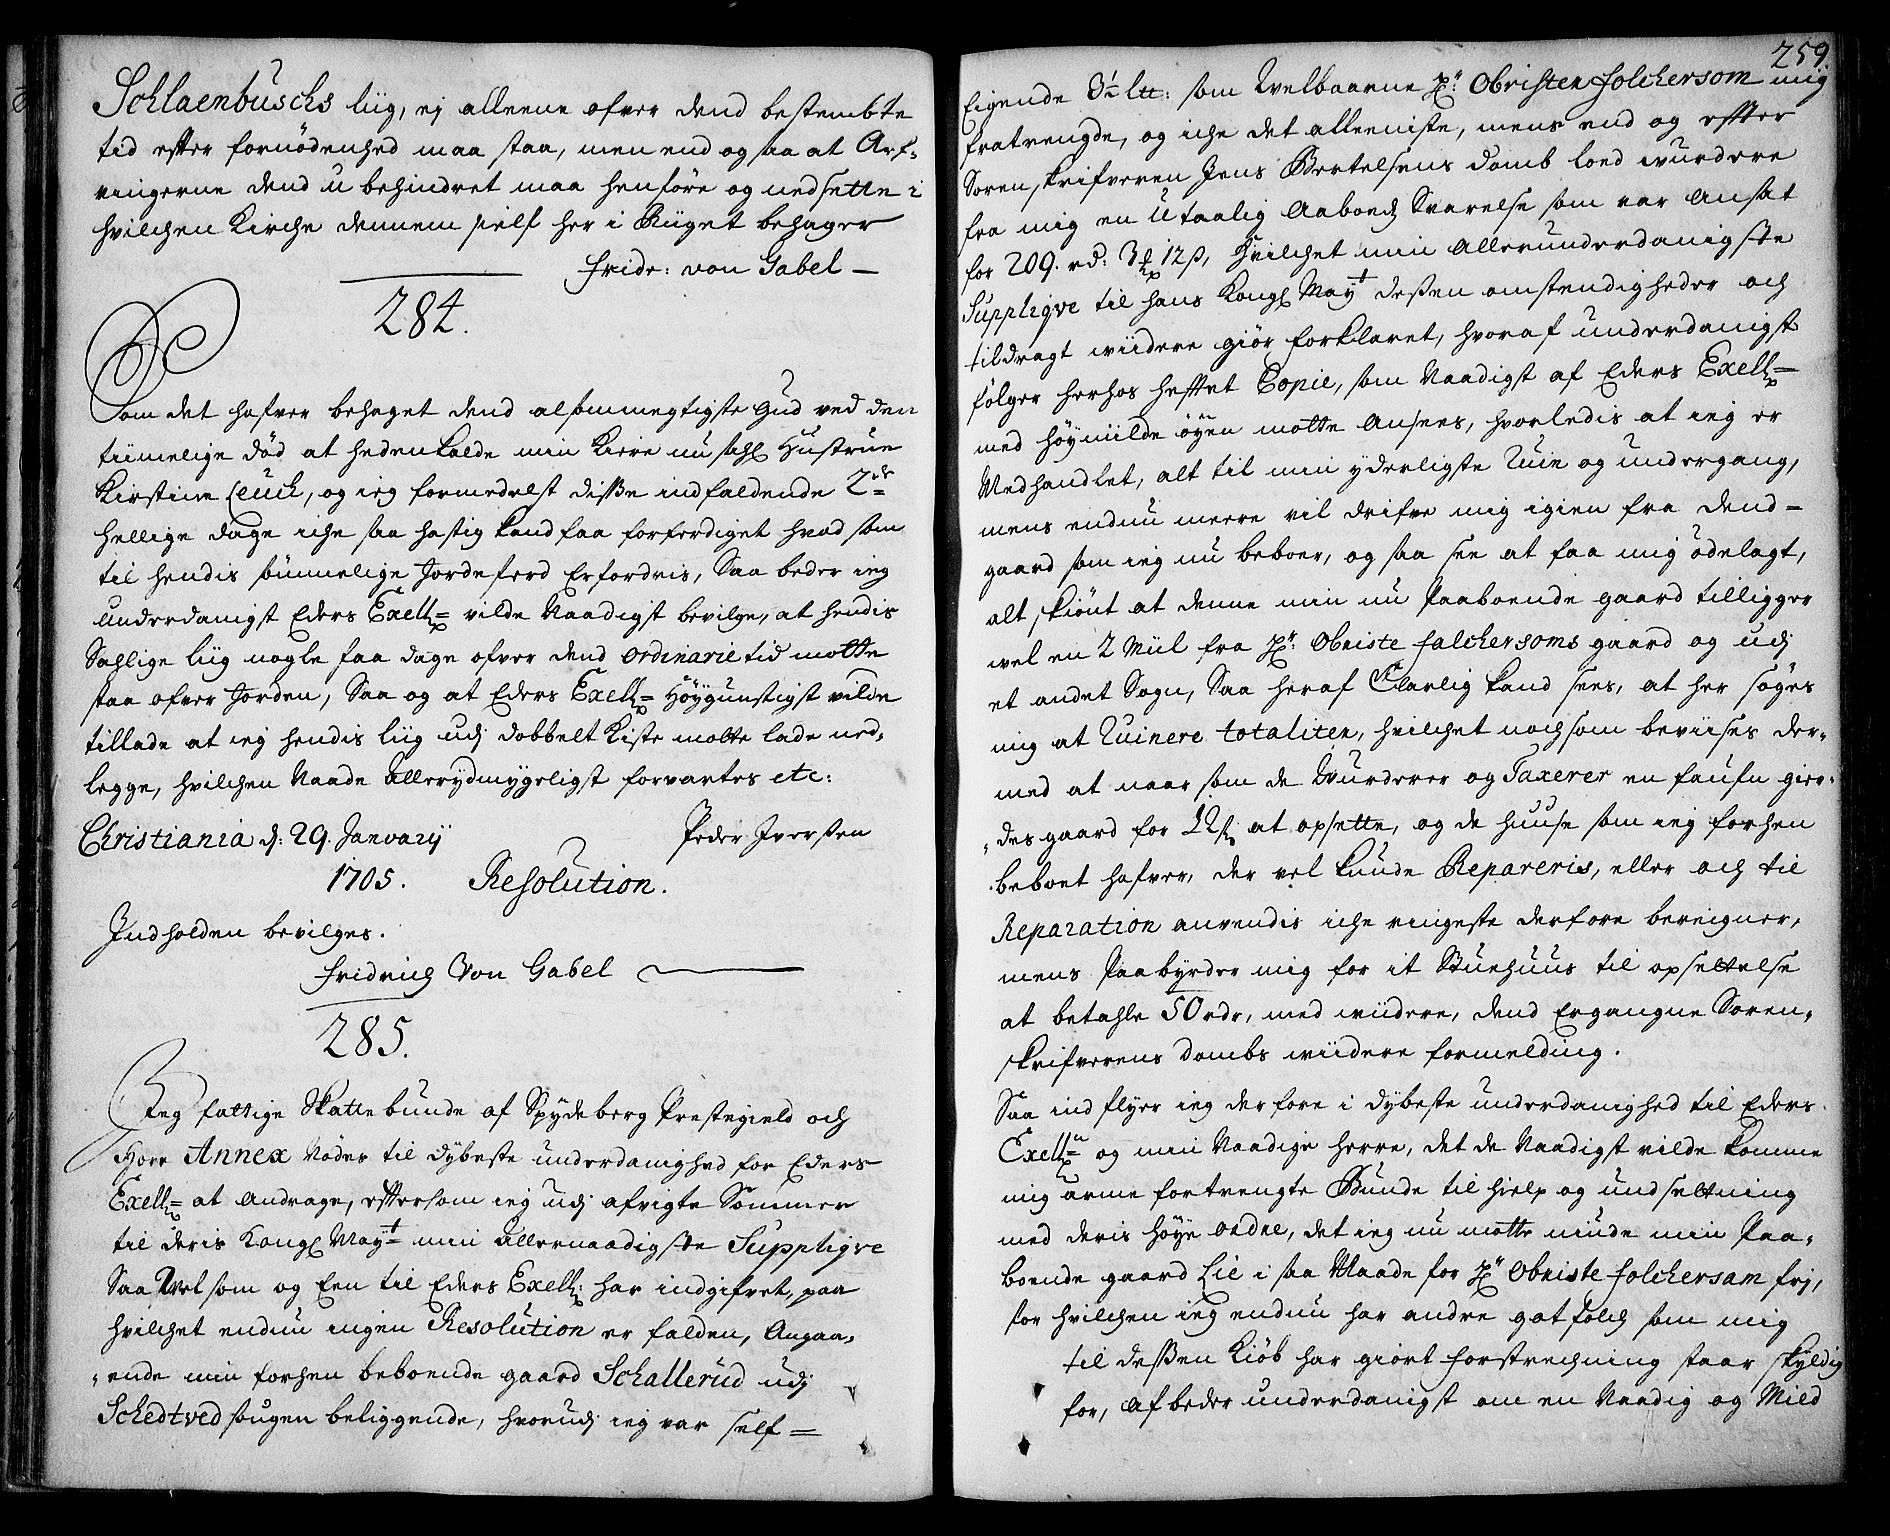 Schlaenbuschs liig, ej alleene ofver dend bestembte
tid efter fornödenhed maa staa, men end og saa at Arf-
vingerne dend u behindret maa henföre og nedsette i
hvilchen Kirche dennem self her i Riiget behager
Frider: von Gabel
284.
Som det hafver behaget dend alsommegtigste Gud ved den
tiimelige död at hedenkalde min Kiere nu Sahl Hustrue
Kirstine Leuch, og ieg formedelst disse indfaldende 2de
hellige dage iche saa hastig kand faa forferdiget hvad som
til hendis sömmelige Jordeferd Erfordris, Saa beder ieg
underdanigst Eders Excell= vilde Naadigst bevilge, at hendis
Sahlige liig nogle faa dage ofver dend ordinarie tid motte
staa ofver Jorden, Saa og at Eders Excell= Höygunstigst vilde
tillade at ieg hendis liig udj dobbelt Kiste motte lade ned-
legge, hvilchen Naade Allerydmygeligst forvartes etc:
Christiania d: 29. Januarij Peder Iversen
1705. Resolution.
Indholden bevilges.
Fridrich Von Gabel
285.
Jeg fattige Skattebunde af Spydeberg Prestegield och
Horr Annex Nödes til dybeste underdanighed for Eders
Excell= at andrage, eftersom ieg udj afvigte Sommer
til deris Kongl Mayt= min allernaadigste Suppliqve
Saa Vel som og Een til Eders Excell: har indgifvet, paa
hvilchet endnu ingen Resolution er falden, Angaa-
ende min forhen beboende gaard Schallerud udj
Schedtved sougen beliggende, hvorudj ieg var self=
259.
Eigende 3½ ltt: som Welbaarne Hr: Obristen Folchersom mig
fratrengde, og iche det alleeniste, mens end og efter
Soren skrifveren Jens Bertelsens domb loed wurdere
fra mig en Utaalig Aaboeds Svarelse som var Ansat
for 209. rd: 3 12 s, hvilchet min Allerunderdanigste
Suppliqve til hans Kongl Mayt dessen omstendigheder och
tildragt wiidere giör forklaret, hvoraf underdanigst
fölger herhos heftet Copie, som Naadigst af Eders Excell=
med höymilde öyen motte Ansees, hvorledis at ieg er
Medhandlet, alt til min yderligste Ruin og undergang,
mens endnu meere vil drifve mig igien fra dend
gaard som ieg nu beboer, og saa see at faa mig ödelagt,
alt skiönt at denne min nu Paaboende gaard tilligger
wel en 2 Miil fra Hr: Obriste Falchersoms gaard og udj
et andet Sogn, Saa heraf Claarlig kand sees, at her söges
mig at Ruinere totaliter, hvilchet nochsom beviises der-
med at naar som de Wurderer og Taxerer en faufn gier-
des gaard for at opsette, og de huuse som ieg forhen
beboet hafver, der vel kunde Repareris, eller och til
Reparation anvendis iche ringeste derfore bereigner,
mens Paabyrder mig for it Stuehuus til opsettelse
at betahle 50 rdr, med wiidere, dend Ergangne Soren-
skrifverens dombs wiidere formelding.
Saa indflyer ieg derfore i dybeste underdanighed til Eders
Excell= og min Naadige herre, det de Naadigst vilde komme
mig arme fortrengte Bunde til hielp og undsettning
med deris höye ordre, det ieg nu motte niude min Paa-
boende gaard Lie i saa Maade for Hr Obriste Folchersam frj,
for hvilchen ieg endnu har andre got folch som mig
til dessen Kiöb har giort forstrechning staar skyldig
for, Afbeder underdanigst om en Naadig og Mild